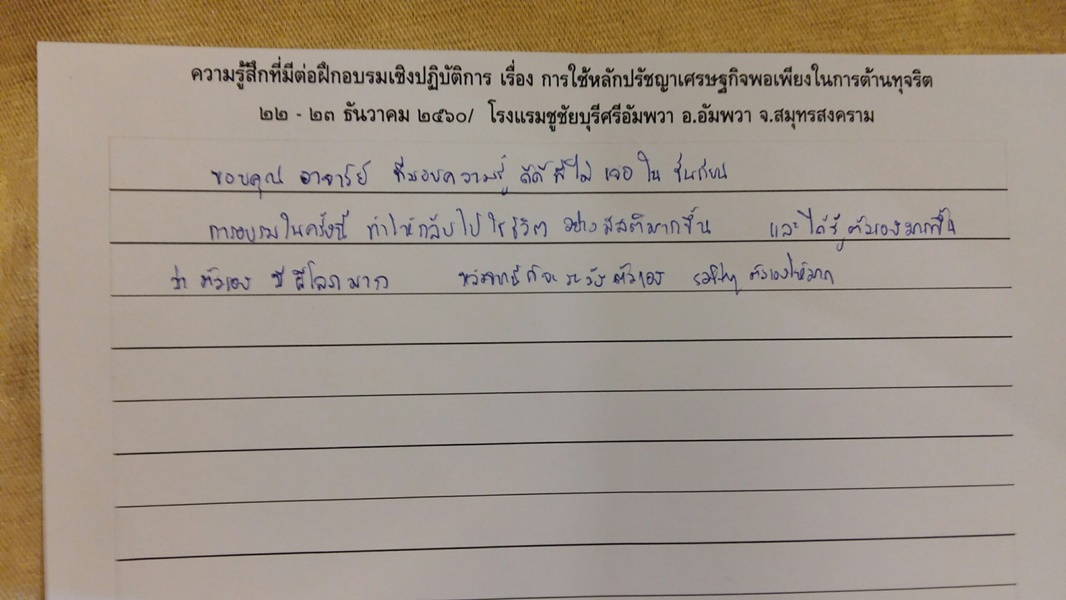 ความรู้สึกที่มีต่อฝึกอบรมเชิงปฏิบัติการ เรื่อง การใช้หลักปรัชญาเศรษฐกิจพอเพียงในการต้านทุจริต
๒๒ - ๒๓ ธันวาคม ๒๕๖๐/ โรงแรมชูชัยบุรีศรีอัมพวา อ.อัมพวา จ.สมุทรสงคราม
ขอบคุณ อาจารย์ ที่มอบความรู้ ดีดี ที่ไม่ เจอ ใน ชั้นเรียน
การอบรมในครั้งนี้ ทำให้กลับไป ใช้ชีวิต อย่างมีสติมากขึ้น และ ได้รู้ ตัวเองมากขึ้น
ว่า ตัวเอง มี กิโลภมาก หลังจากนี้ ก็จะ ระวัง ตัวเอง ตัวเองให้มาก